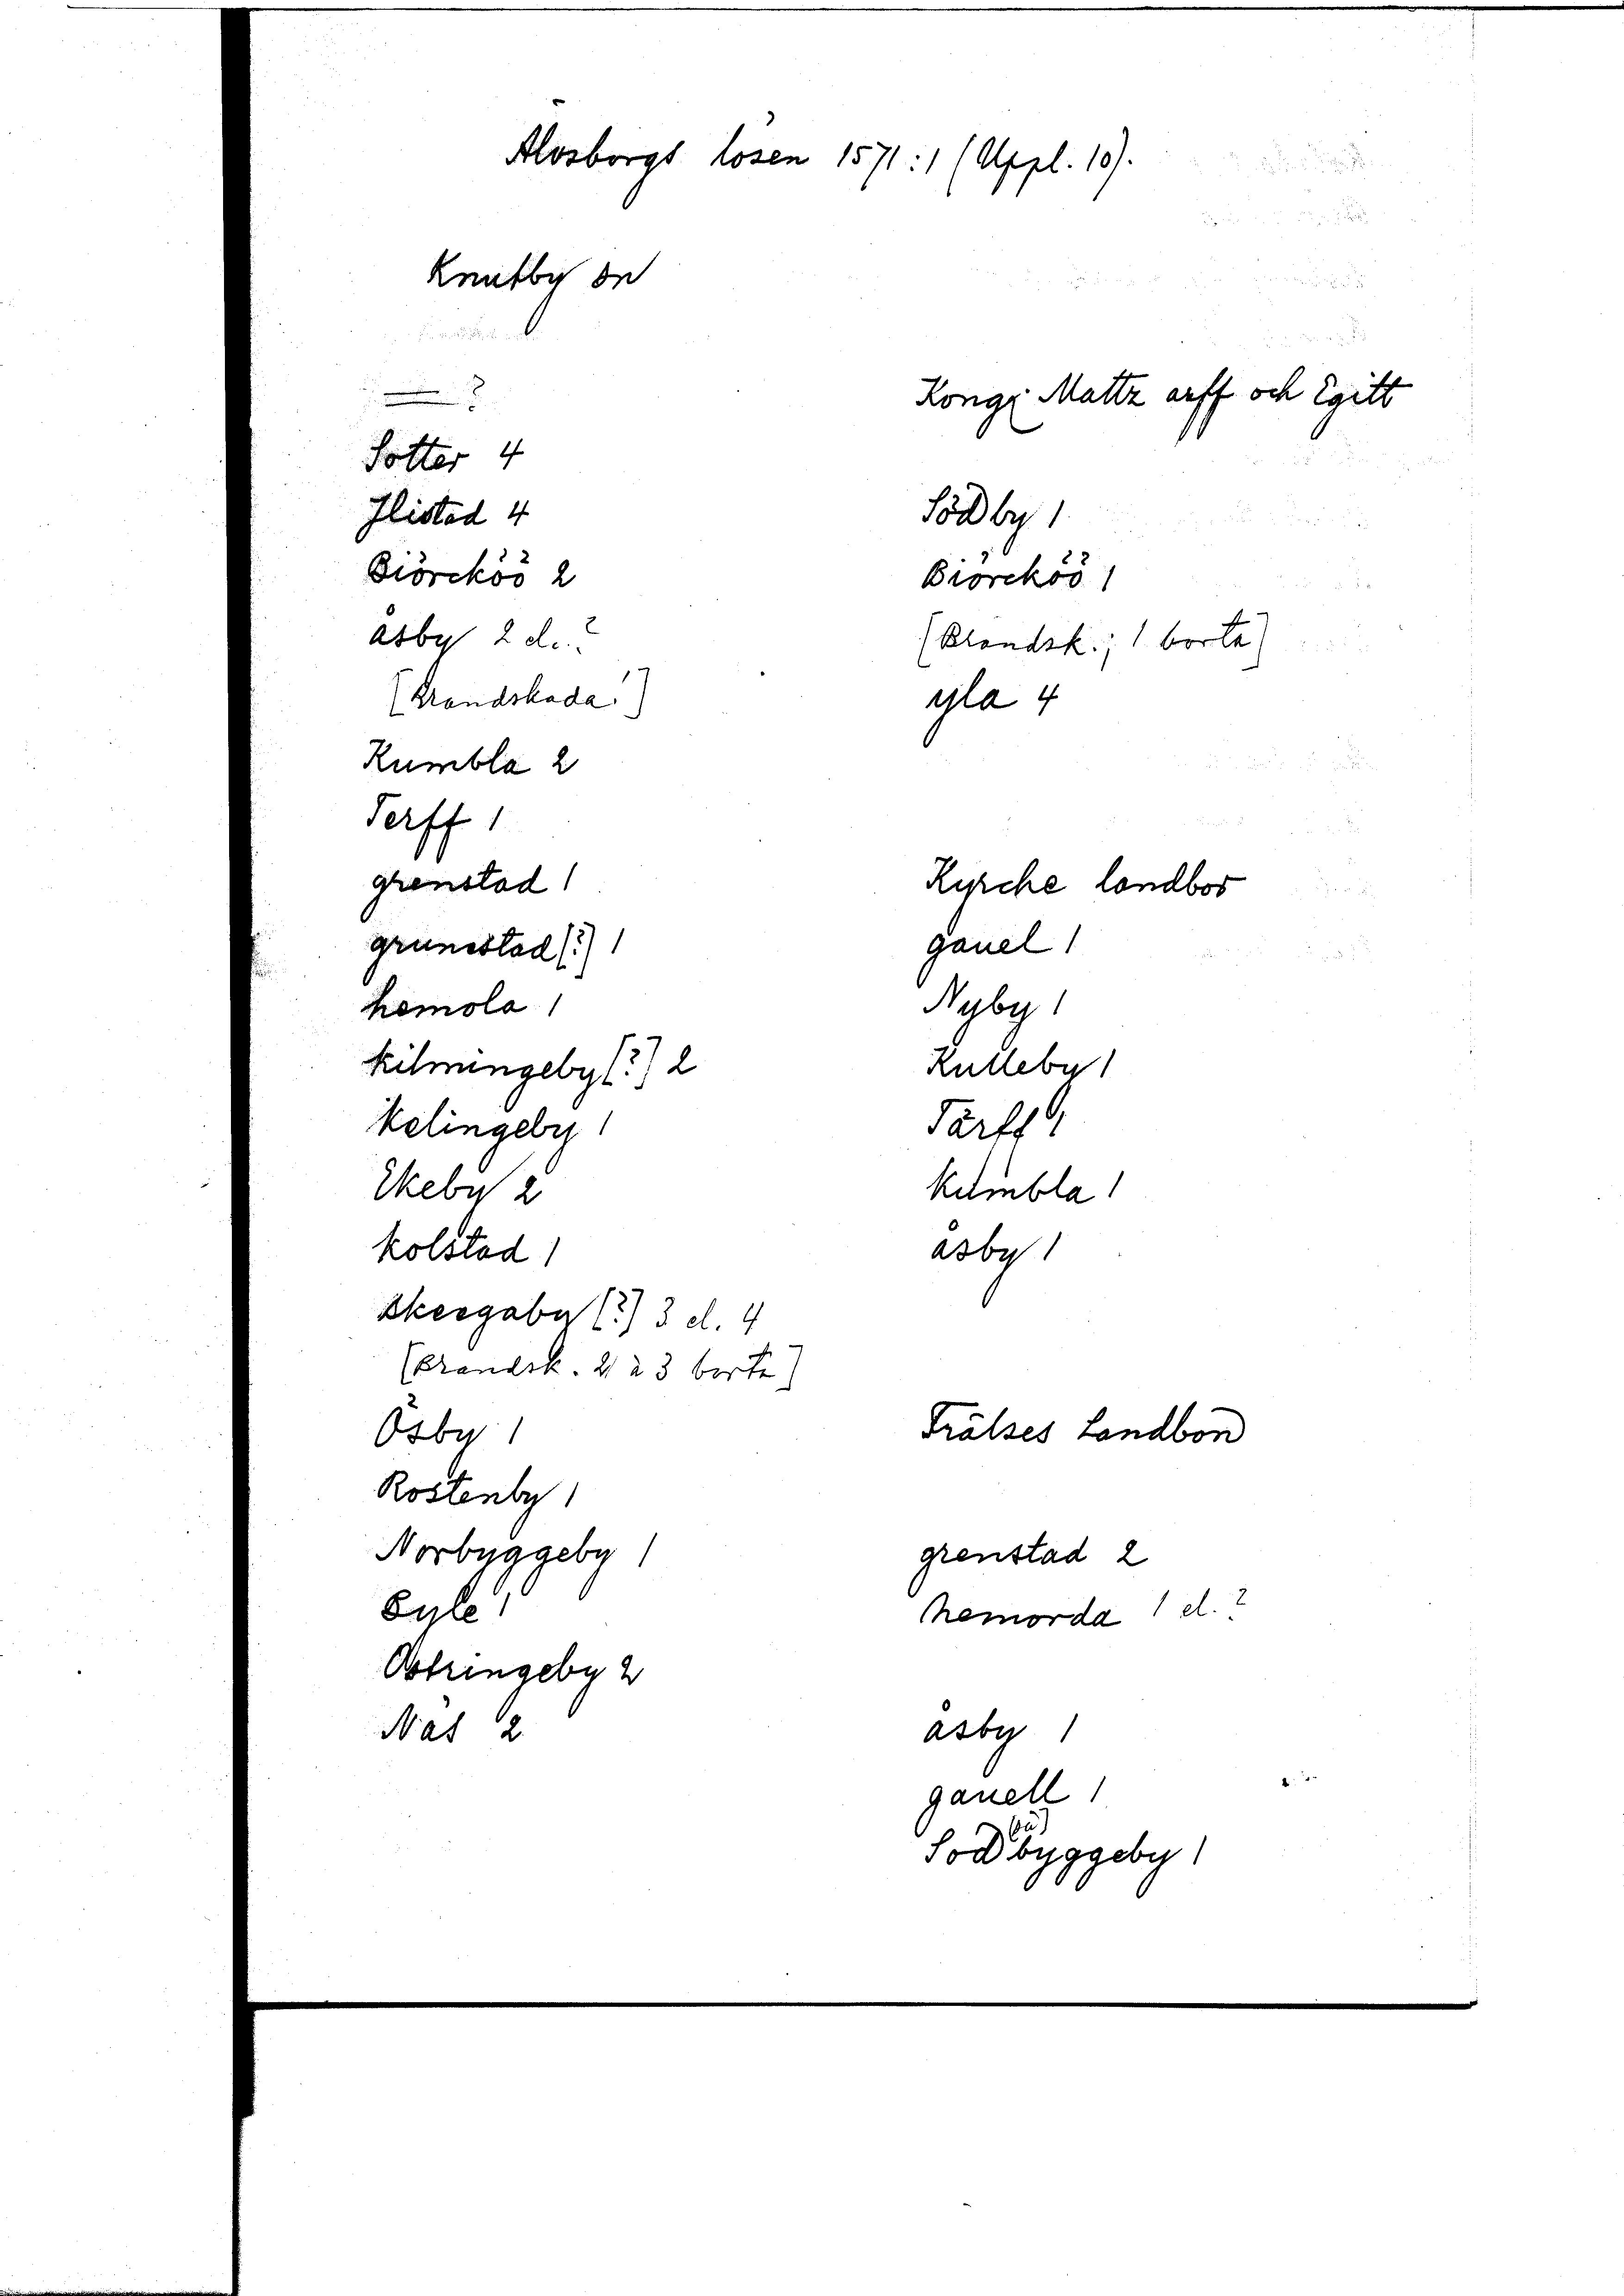 Älvsborgs lösen 1571:1 (Uppl. 10).
Knutby sn
= ?
Sotter 4
Jlistad 4
Biörcköö 2
åsby 2 el. ?
[Brandskada!]
Kumbla 2
Terff 1
grenstad 1
grunestad [?] 1
hemola 1
kilmingeby [?] 2
kelingeby 1
Ekeby 2
kolstad 1
skeegaby [?] 3 el. 4
[Brandsk. 2 à 3 borta]
Ösby 1
Rostenby 1
Norbyggeby 1
Gyle 1
Ostringeby 2
Näs 2
Kongx Mattz arff och Egitt
Södby 1
Biörcköö 1
[Brandsk.; 1 borta]
yla 4
Kyrche landbor
gauel 1
Nyby 1
Kulleby 1
Tärff 1
kumbla 1
åsby 1
Frälses Landbon
grenstad 2
hemorda 1 el. ?
åsby 1
gauell 1
Sodbyggeby 1